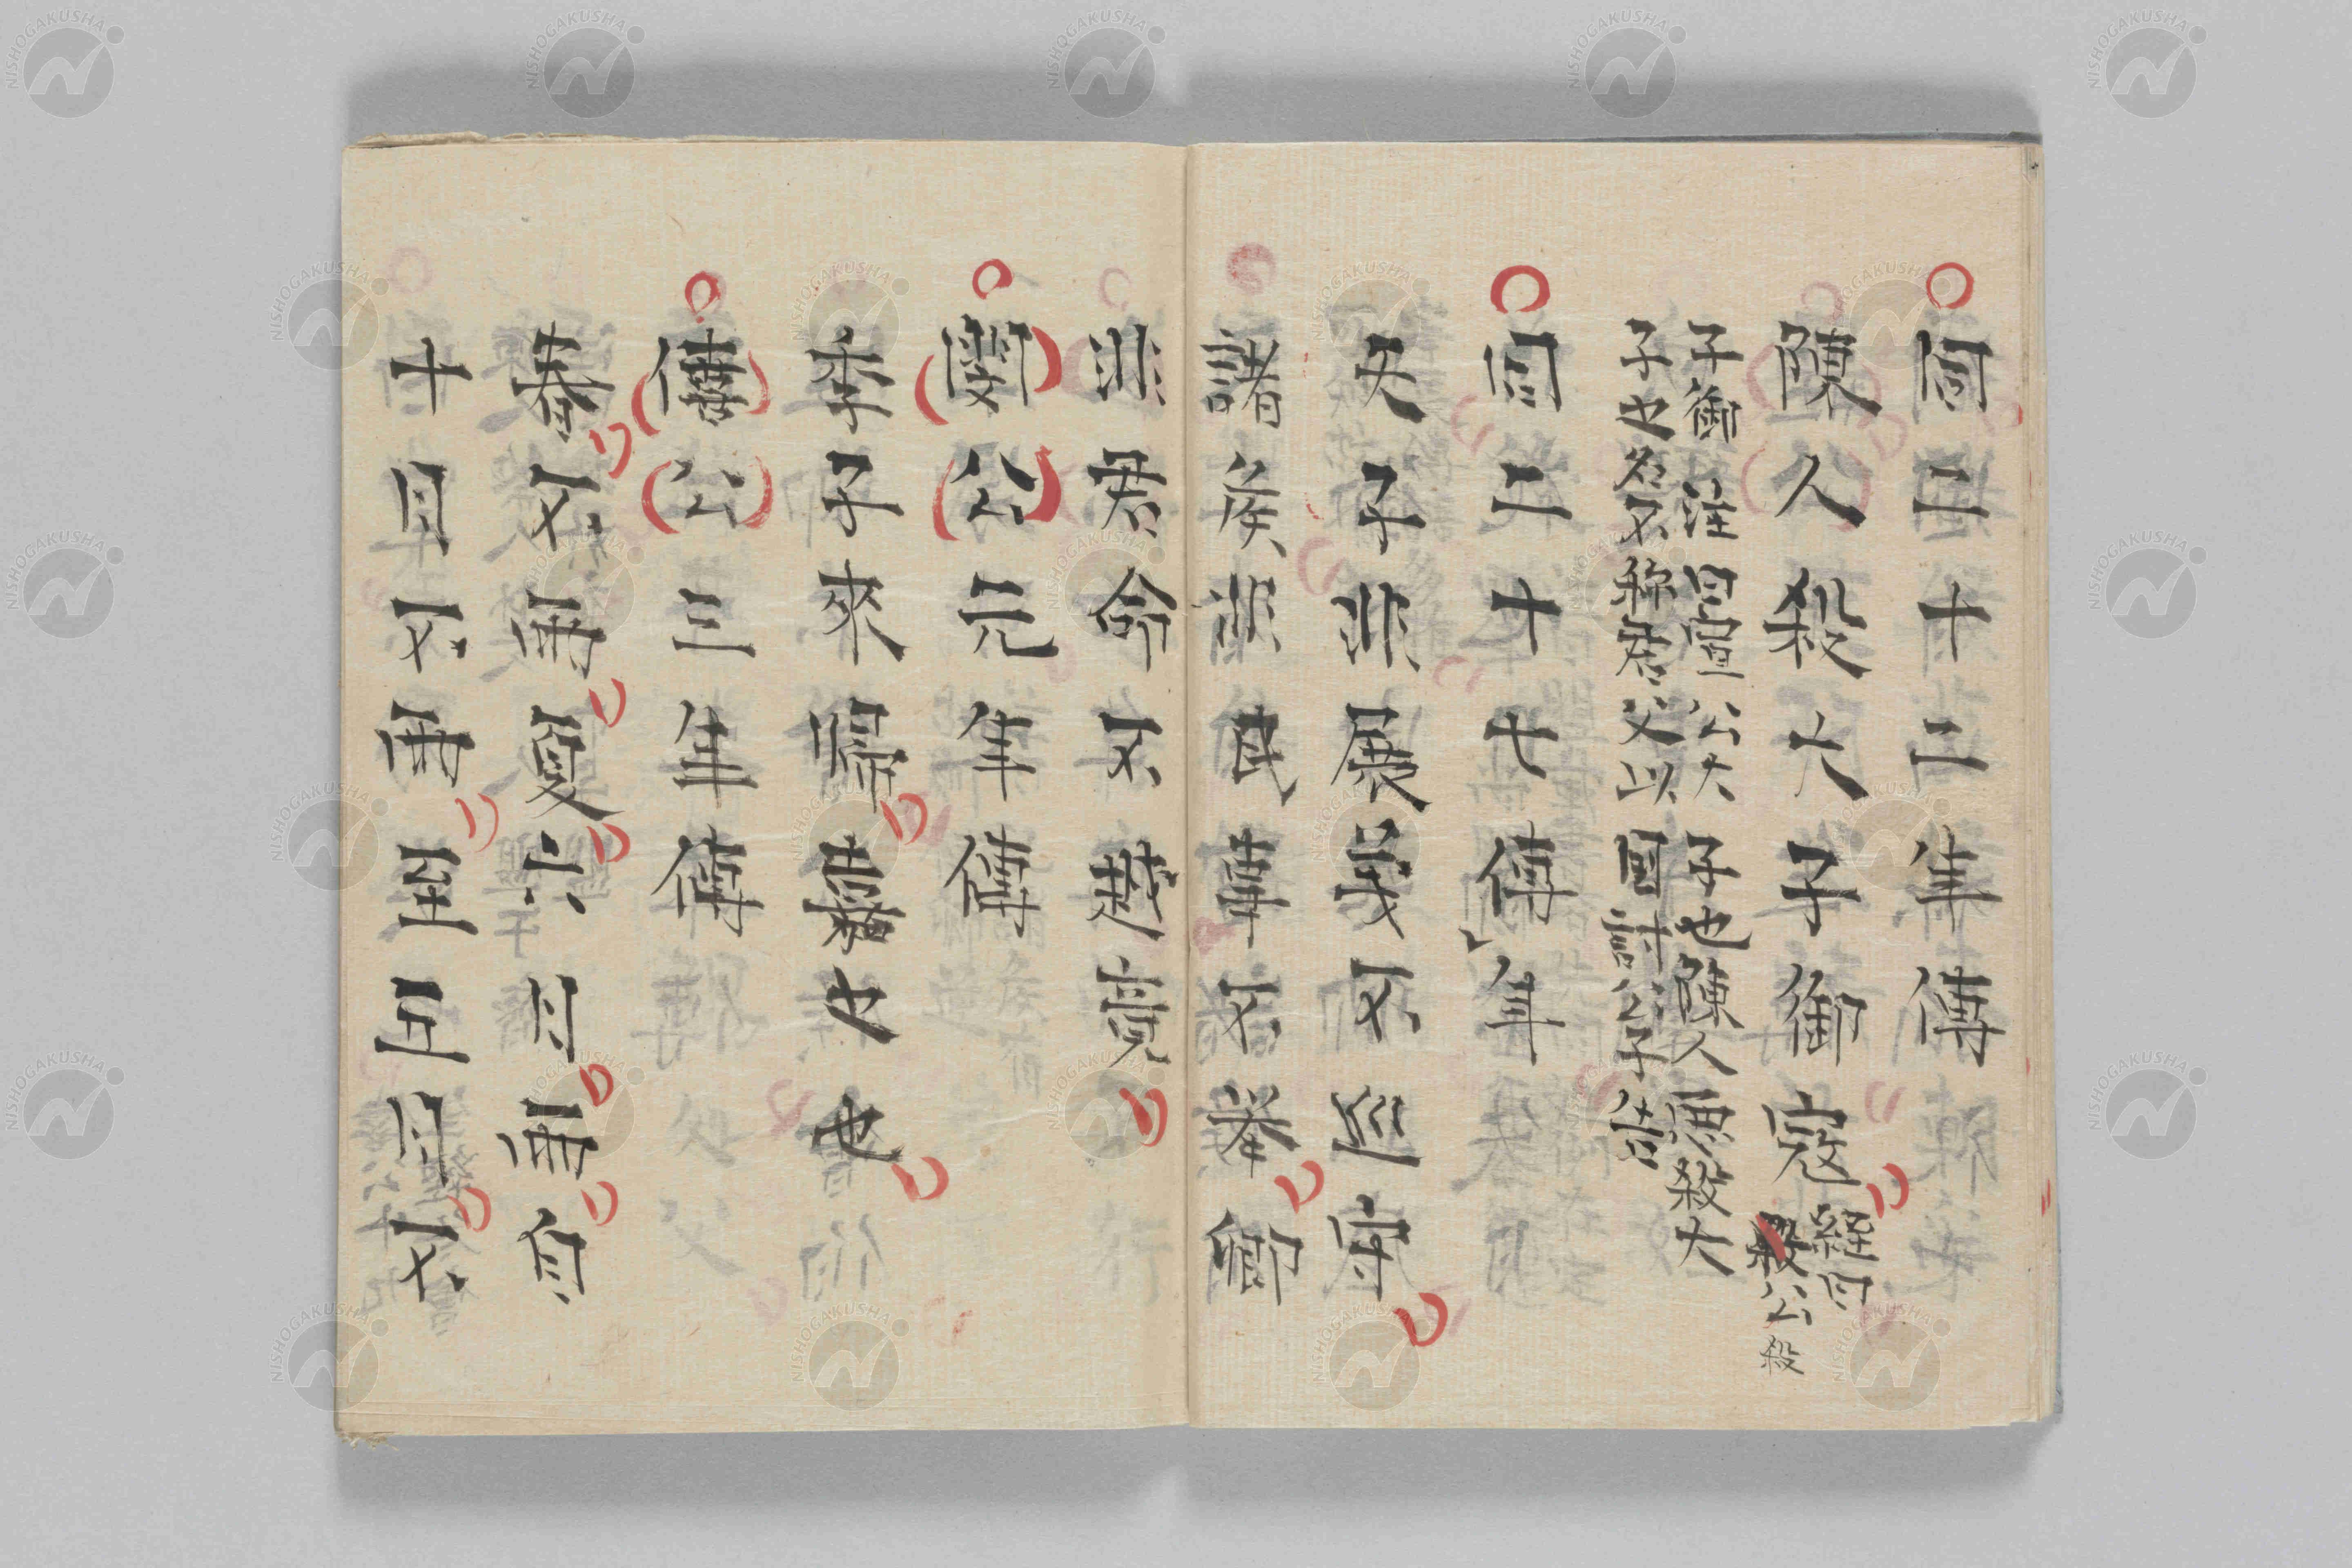 同二十二年傳
陳人殺大子御寇
經曰
殺公
殺
子御注曰宣公大子也陳人惡殺大
子也名不称君父以國討公子告
同二十七傳年
天子非展義不巡守
諸侯非民事不挙卿
非君命不越竟
閔公元年傳
季子來歸嘉之也
僖公三年傳
春不雨夏六月雨自
十月不雨至五月不
NISHOGAKUSHA